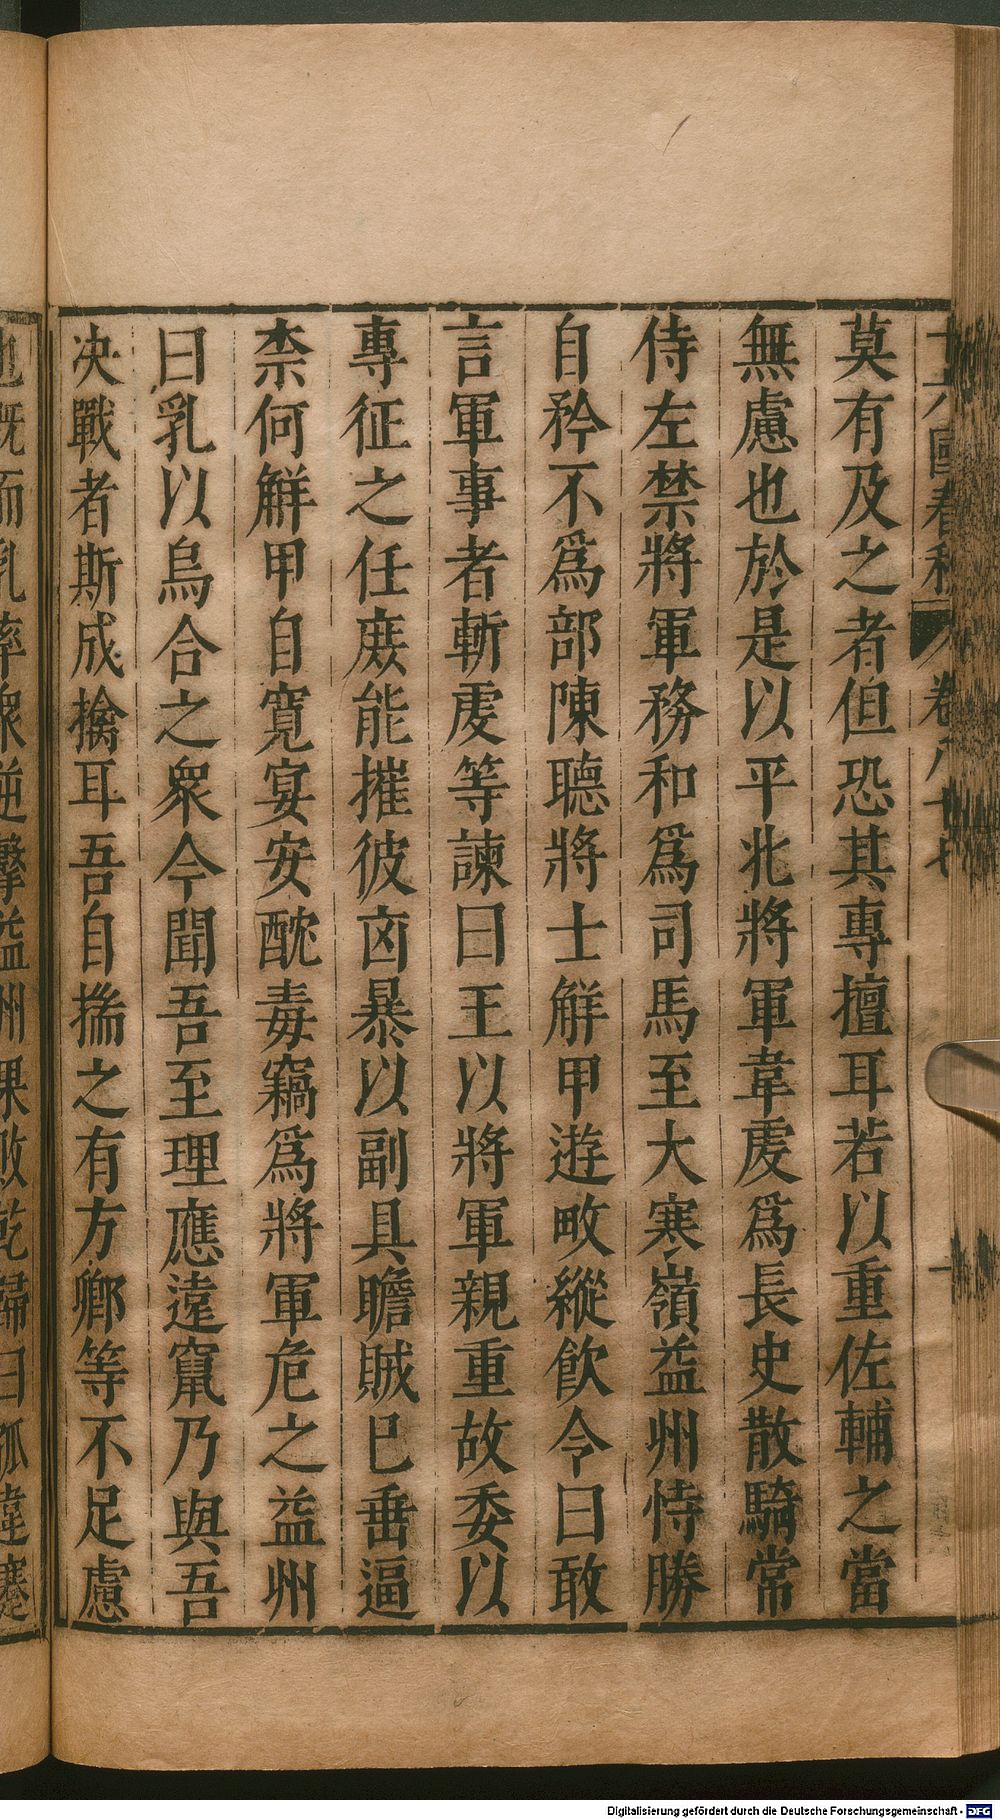 十六國春秋 卷八十七
莫有及之者但恐其專擅耳若以重佐輔之當
無慮也於是以平北將軍韋虔爲長史散騎常
侍左禁將軍務和爲司馬至大寒嶺益州恃勝
自矜不爲部陳聽將士觧甲遊畋縱飲令曰敢
言軍事者斬虔等諫曰王以將軍親重故委以
專征之任庶能摧彼㐫暴以副具瞻賊巳垂逼
柰何觧甲自寬宴安酖毒竊爲將軍危之益州
曰乳以烏合之衆今聞吾至理應遠竄乃與吾
决戰者斯成擒耳吾自揣之有方卿等不足慮
也既而乳率衆逆擊益州果敗乾歸曰孤違蹇
Digitalisierung gefördert durch die Deutsche Forschungsgemeinschaft - DFG